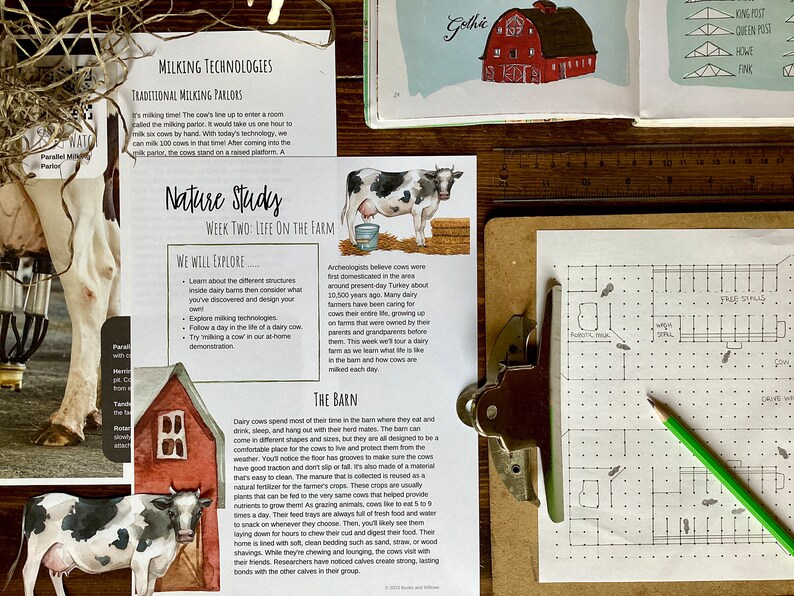 Gothic
24
KING POST
QUEEN POST
HOWE
FINK
MILKING TECHNOLOGIES
TRADITIONAL MILKING PARLORS
It's milking time! The cow's line up to enter a room
called the milking parlor. It would take us one hour to
milk six cows by hand. With today's technology, we
can milk 100 cows in that time! After coming into the
milk parlor, the cows stand on a raised platform. A
Parallel Milking
Parlor
Nature Study
WEEK TWO: LIFE ON THE FARM
WE WILL EXPLORE .....
• Learn about the different structures
inside dairy barns then consider what
you've discovered and design your
own!
• Explore milking technologies.
• Follow a day in the life of a dairy cow.
• Try 'milking a cow' in our at-home
demonstration.
Archeologists believe cows were
first domesticated in the area
around present-day Turkey about
10,500 years ago. Many dairy
farmers have been caring for
cows their entire life, growing up
on farms that were owned by their
parents and grandparents before
them. This week we'll tour a dairy
farm as we learn what life is like
in the barn and how cows are
milked each day.
THE BARN
Dairy cows spend most of their time in the barn where they eat and
drink, sleep, and hang out with their herd mates. The barn can
come in different shapes and sizes, but they are all designed to be a
comfortable place for the cows to live and protect them from the
weather. You'll notice the floor has grooves to make sure the cows
have good traction and don't slip or fall. It's also made of a material
that's easy to clean. The manure that is collected is reused as a
natural fertilizer for the farmer's crops. These crops are usually
plants that can be fed to the very same cows that helped provide
nutrients to grow them! As grazing animals, cows like to eat 5 to 9
times a day. Their feed trays are always full of fresh food and water
to snack on whenever they choose. Then, you'll likely see them
laying down for hours to chew their cud and digest their food. Their
home is lined with soft, clean bedding such as sand, straw, or wood
shavings. While they're chewing and lounging, the cows visit with
their friends. Researchers have noticed calves create strong, lasting
bonds with the other calves in their group.
© 2023 Books and Willows
Paralle
with co
Herrin
pit. Co
from e
Tande
the fa
Rotar
slowly
attach
FREE STALLS
ROBOTIC MILK
WASH
STALL
COW
DRIVE WA